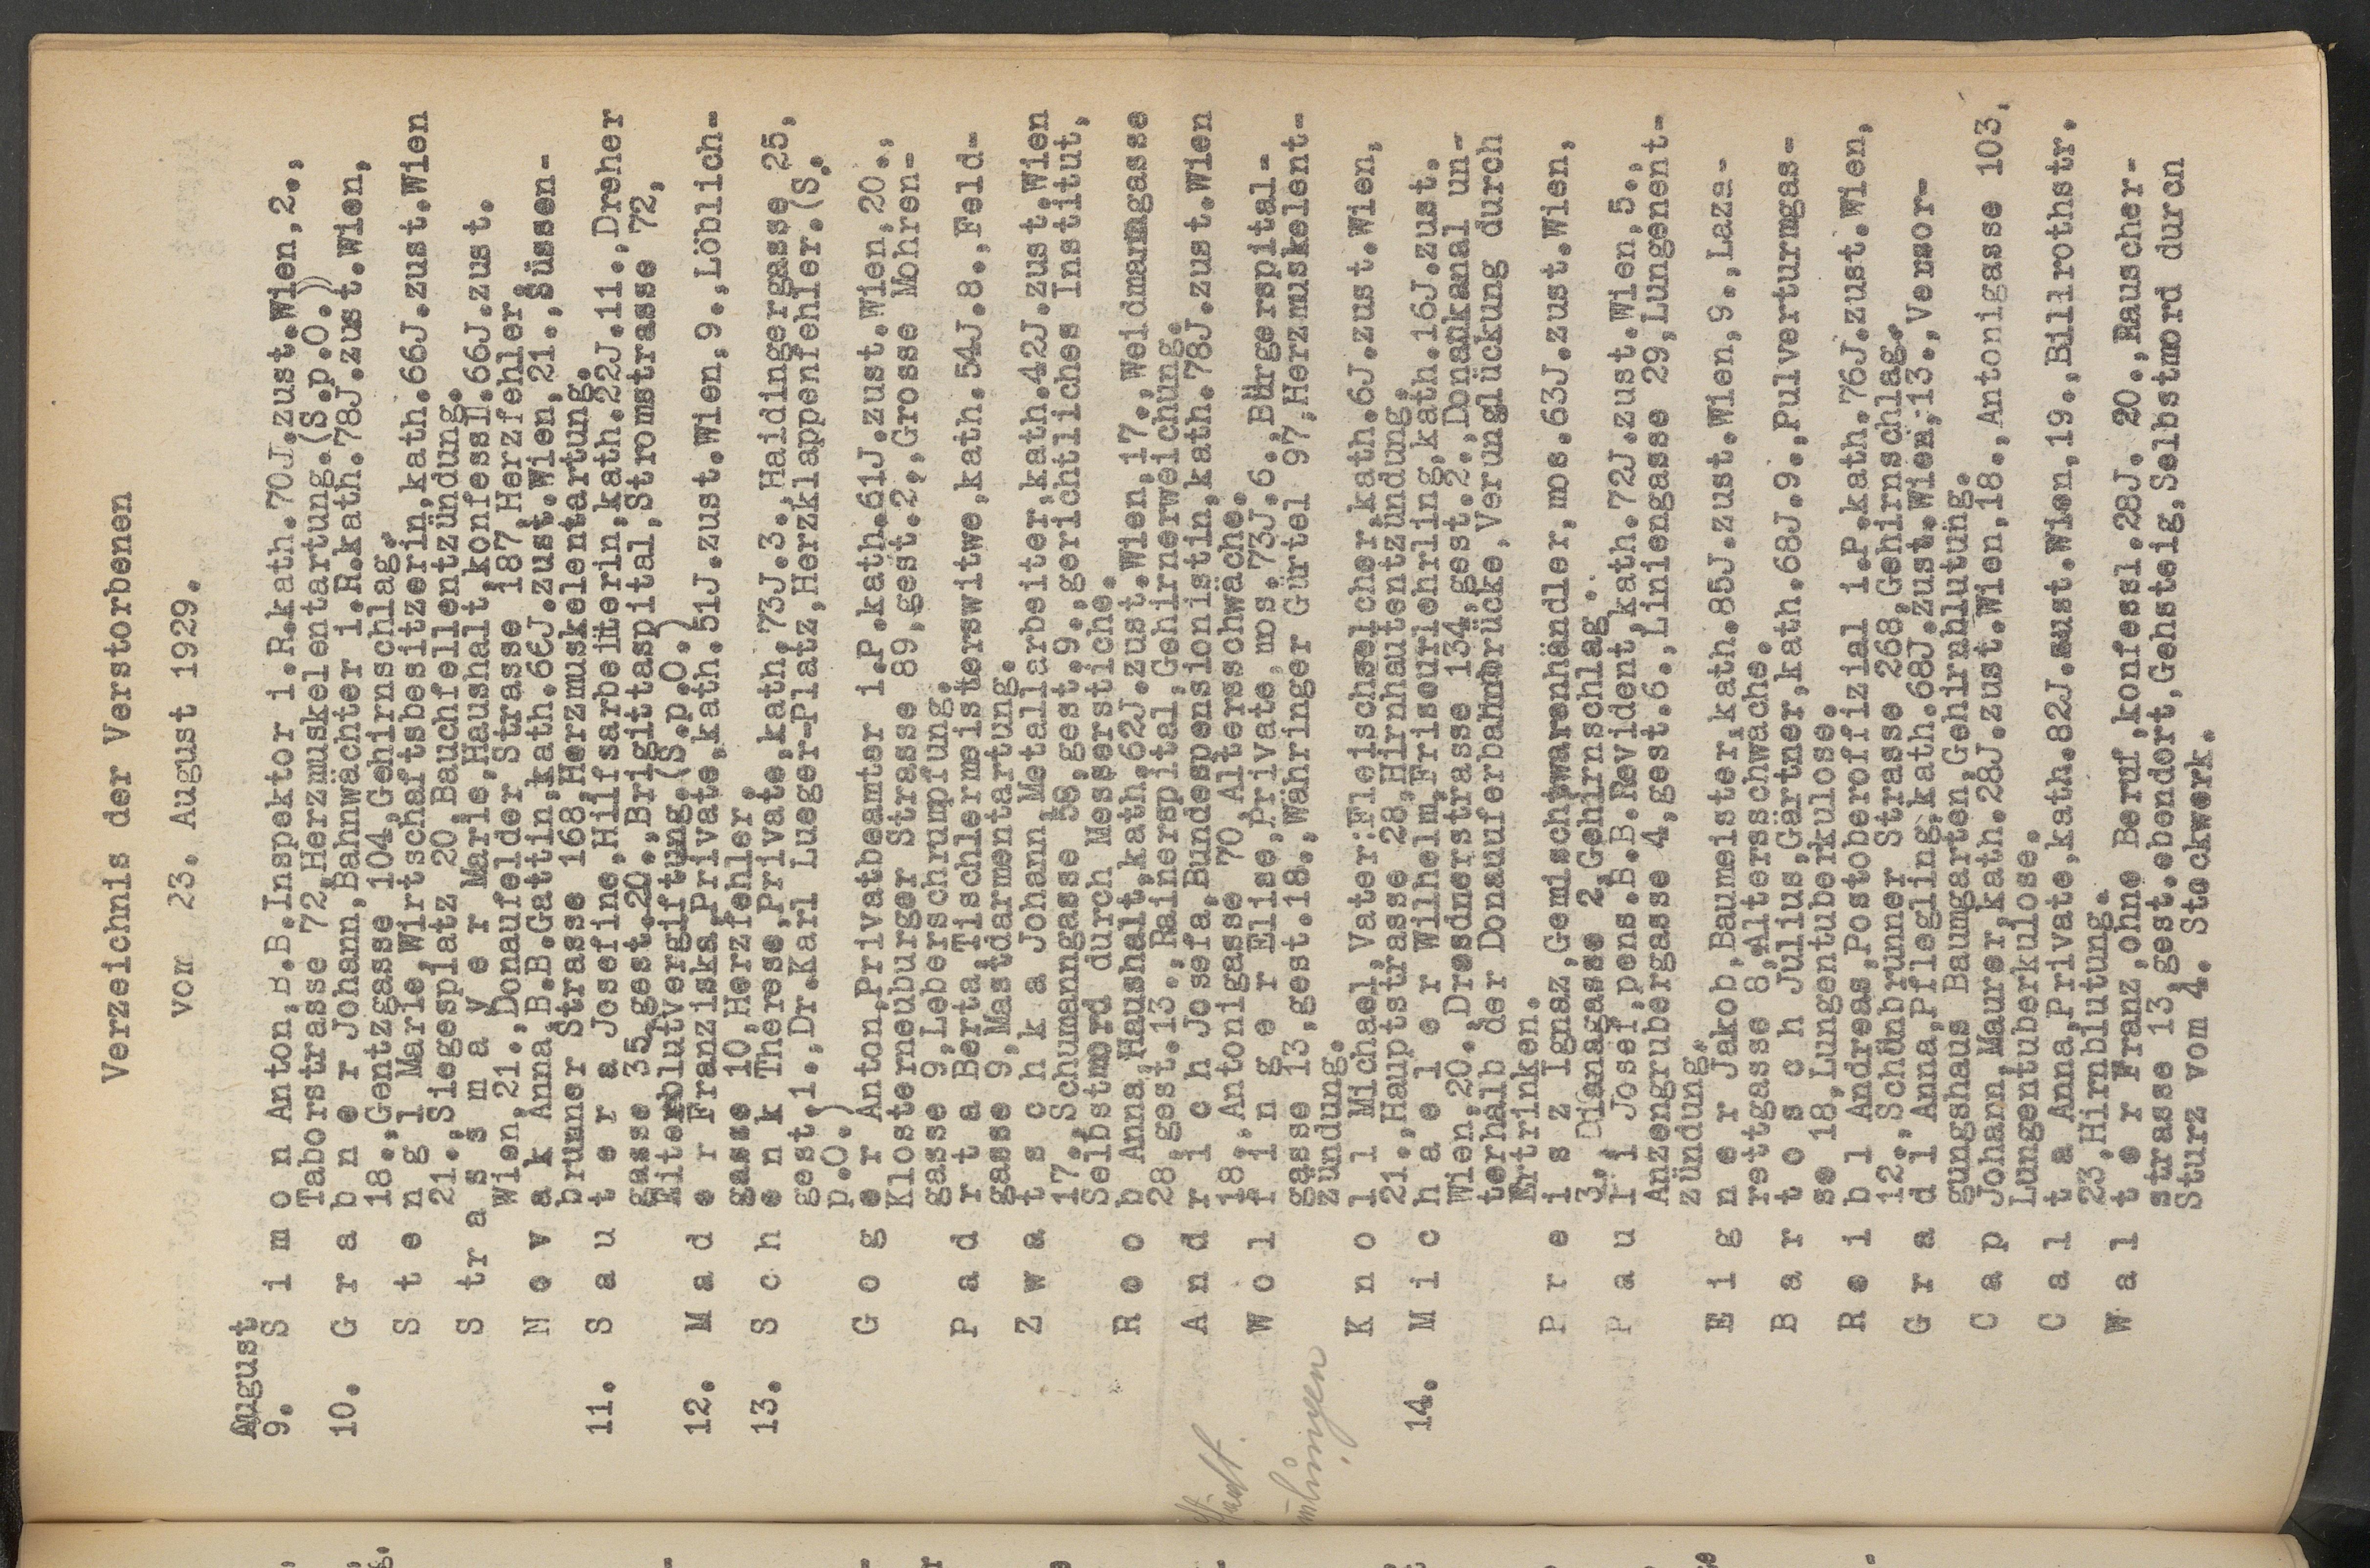 Verzeichnis der Verstorbenen
vom 23. August 1929.
August
9. S i m o n Anton,B.B.Inspektor i.R.kath.70J.zust.Wien,2.,
Taborstrasse 72,Herzmuskelentartung.(S.p.O.)
10. G r a b n e r Johann,Bahnwächter i.R.kath.78J.zust.Wien,
18.,Gentzgasse 104,Gehirnschlag.
S t e n g l Marie,Wirtschaftsbesitzerin,kath.66J.zust.Wien
21.,Siegesplatz 20,Bauchfellentzündung.
S tr a s s m a y e r Marie,Haushalt,konfessl.66J.zust.
Wien,21.,Donaufelder Strasse 187,Herzfehler.
N o v a k Anna,B.B.Gattin,kath.66J.zust.Wien,21.,Süssen-
brunner Strasse 168,Herzmuskelentartung.
11. S a u t e r a Josefine,Hilfsarbeiterin,kath.22J.11.,Dreher
gasse 35,gest.20.,Brigittaspital,Stromstrasse 72,
Eiterblutvergiftung.(S.p.O.)
12. M a d e r Franziska,Private,kath.51J.zust.Wien,9.,Löblich-
gasse 10,Herzfehler.
13. S c h e n k Therese,Private,kath.73J.3.,Haidingergasse 25,
gest.1.,Dr.Karl Lueger-Platz,Herzklappenfehler.(S.
p.O.)
G o g e r Anton,Privatbeamter i.P.kath.61J.zust.Wien,20.,
Klosterneuburger Strasse 89,gest.2.,Grosse Mohren-
gasse 9,Leberschrumpfung.
P a d r t a Berta,Tischlermeisterswitwe,kath.54J.8.,Feld-
gasse 9,Mastdarmentartung.
Z w a t s c h k a Johann,Metallarbeiter,kath.42J.zust.Wien
17.,Schumanngasse 58,gest.9.,gerichtliches Institut,
Selbstmord durch Messerstiche.
R o o b Anna,Haushalt,kath.62J.zust.Wien,17.,Weidmanngasse
28,gest.13.,Rainerspital,Gehirnerweichung.
A n d r i c h Josefa,Bundespensionistin,kath.78J.zust.Wien
18.,Antonigasse 70,Altersschwäche.
W o l f i n g e r Elise,Private,mos.73J.6.,Bürgerspital-
gasse 13,gest.18.,Währinger Gürtel 97,Herzmuskelent-
zündung.
K n o l l Michael,Vater:Fleischselcher,kath.6J.zust.Wien,
21.,Hauptstrasse 28,Hirnhautentzündung.
14. M i c h a e l e r Wilhelm,Friseurlehrling,kath.16J.zust.
Wien,20.,Dresdnerstrasse 134,gest.2.,Donankanal un-
terhalb der Donauuferbahnbrücke,Verunglückung durch
Ertrinken.
P r e i s z Ignaz,Gemischtwarenhändler,mos.63J.zust.Wien,
3.,Dianagasse 2,Gehirnschlag.
P a u l i Josef,pens.B.B.Revident,kath.72J.zust.Wien,5.,
Anzengrubergasse 4,gest.6.,Liniengasse 29,Lungenent-
zündung.
E i g n e r Jakob,Baumeister,kath.85J.zust.Wien,9.,Laza-
rettgasse 8,Altersschwäche.
B a r t o s c h Julius,Gärtner,kath.68J.9.,Pulverturmgas-
se 18,Lungentuberkulose.
R e i b l Andreas,Postoberoffizial i.P.kath.76J.zust.Wien,
12.,Schönbrunner Strasse 268,Gehirnschlag.
G r a d l Anna,Pflegling,kath.68J.zust.Wien,13.,Versor-
gungshaus Baumgarten,Gehirnblutung.
C a p Johann,Maurer,kath.28J.zust.Wien,18.,Antonigasse 103,
Lungentuberkulose.
C a l t a Anna,Private,kath.82J.zust.Wien,19.,Billrothstr.
23,Hirnblutung.
W a l t e r Franz,ohne Beruf,konfessl.28J. 20.,Rauscher-
strasse 13,gest.ebendort,Gehsteig,Selbstmord durch
Sturz vom 4. Stockwerk.